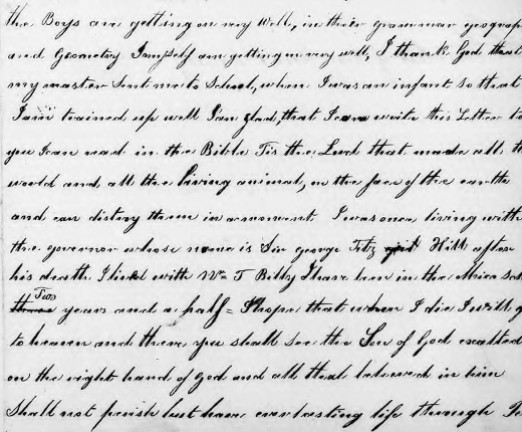 the Boys are getting on very Well, in their grammar geograp
and Geometry I myself am getting on very well, I thank God that
my master Sent me to School, when I was an infant so that
I am trained up well I am glad, that I can write this Letter to
you I can read in the Bible Tis the Lord that made all th
world and all the living animal, on the face of the earth
and can distroy them in a moment I was once living with
the governor whose name is Sir george Fitz Hill after
his death I lived with Mr T Bilby I have been in the Mico Sch
Two years and a half = I hope that when I die I will g
to heaven and there you shall see the Son of God exalted
on the right hand of god and all that believed in him
Shall not perish but have everlasting life through Je